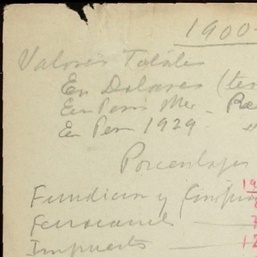 1900-
Valores Totales
En Dolares (te
En Pesos Mex - Re
En Pesos 1929 "
Porcentajes
19
Fundicion y
Ferrocarril
Impuestos 12